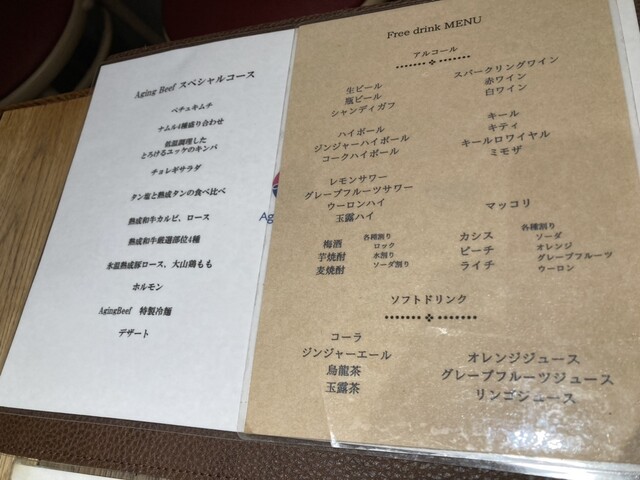 Aging Beef スペシャルコース
ペチュキムチ
ナムル4種盛り合わせ
低温調理した
とろけるユッケのキンパ
チョレギサラダ
タン塩と熟成タンの食べ比べ
熟成和牛カルビ、ロース
熟成和牛厳選部位4種
氷温熟成豚ロース、大山鶏もも
ホルモン
AgingBeef 特製冷麺
デザート
Ag
Free drink MENU
アルコール
生ビール
瓶ビール
シャンディガフ
ハイボール
ジンジャーハイボール
コークハイボール
レモンサワー
グレープフルーツサワー
ウーロンハイ
玉露ハイ
梅酒
芋焼酎
麦焼酎
各種割り
ロック
水割り
ソーダ割り
スパークリングワイン
赤ワイン
白ワイン
キール
キティ
キールロワイヤル
ミモザ
マッコリ
カシス
ピーチ
ライチ
各種割り
ソーダ
オレンジ
グレープフルーツ
ウーロン
ソフトドリンク
コーラ
ジンジャーエール
烏龍茶
玉露茶
オレンジジュース
グレープフルーツジュース
リンゴジュース